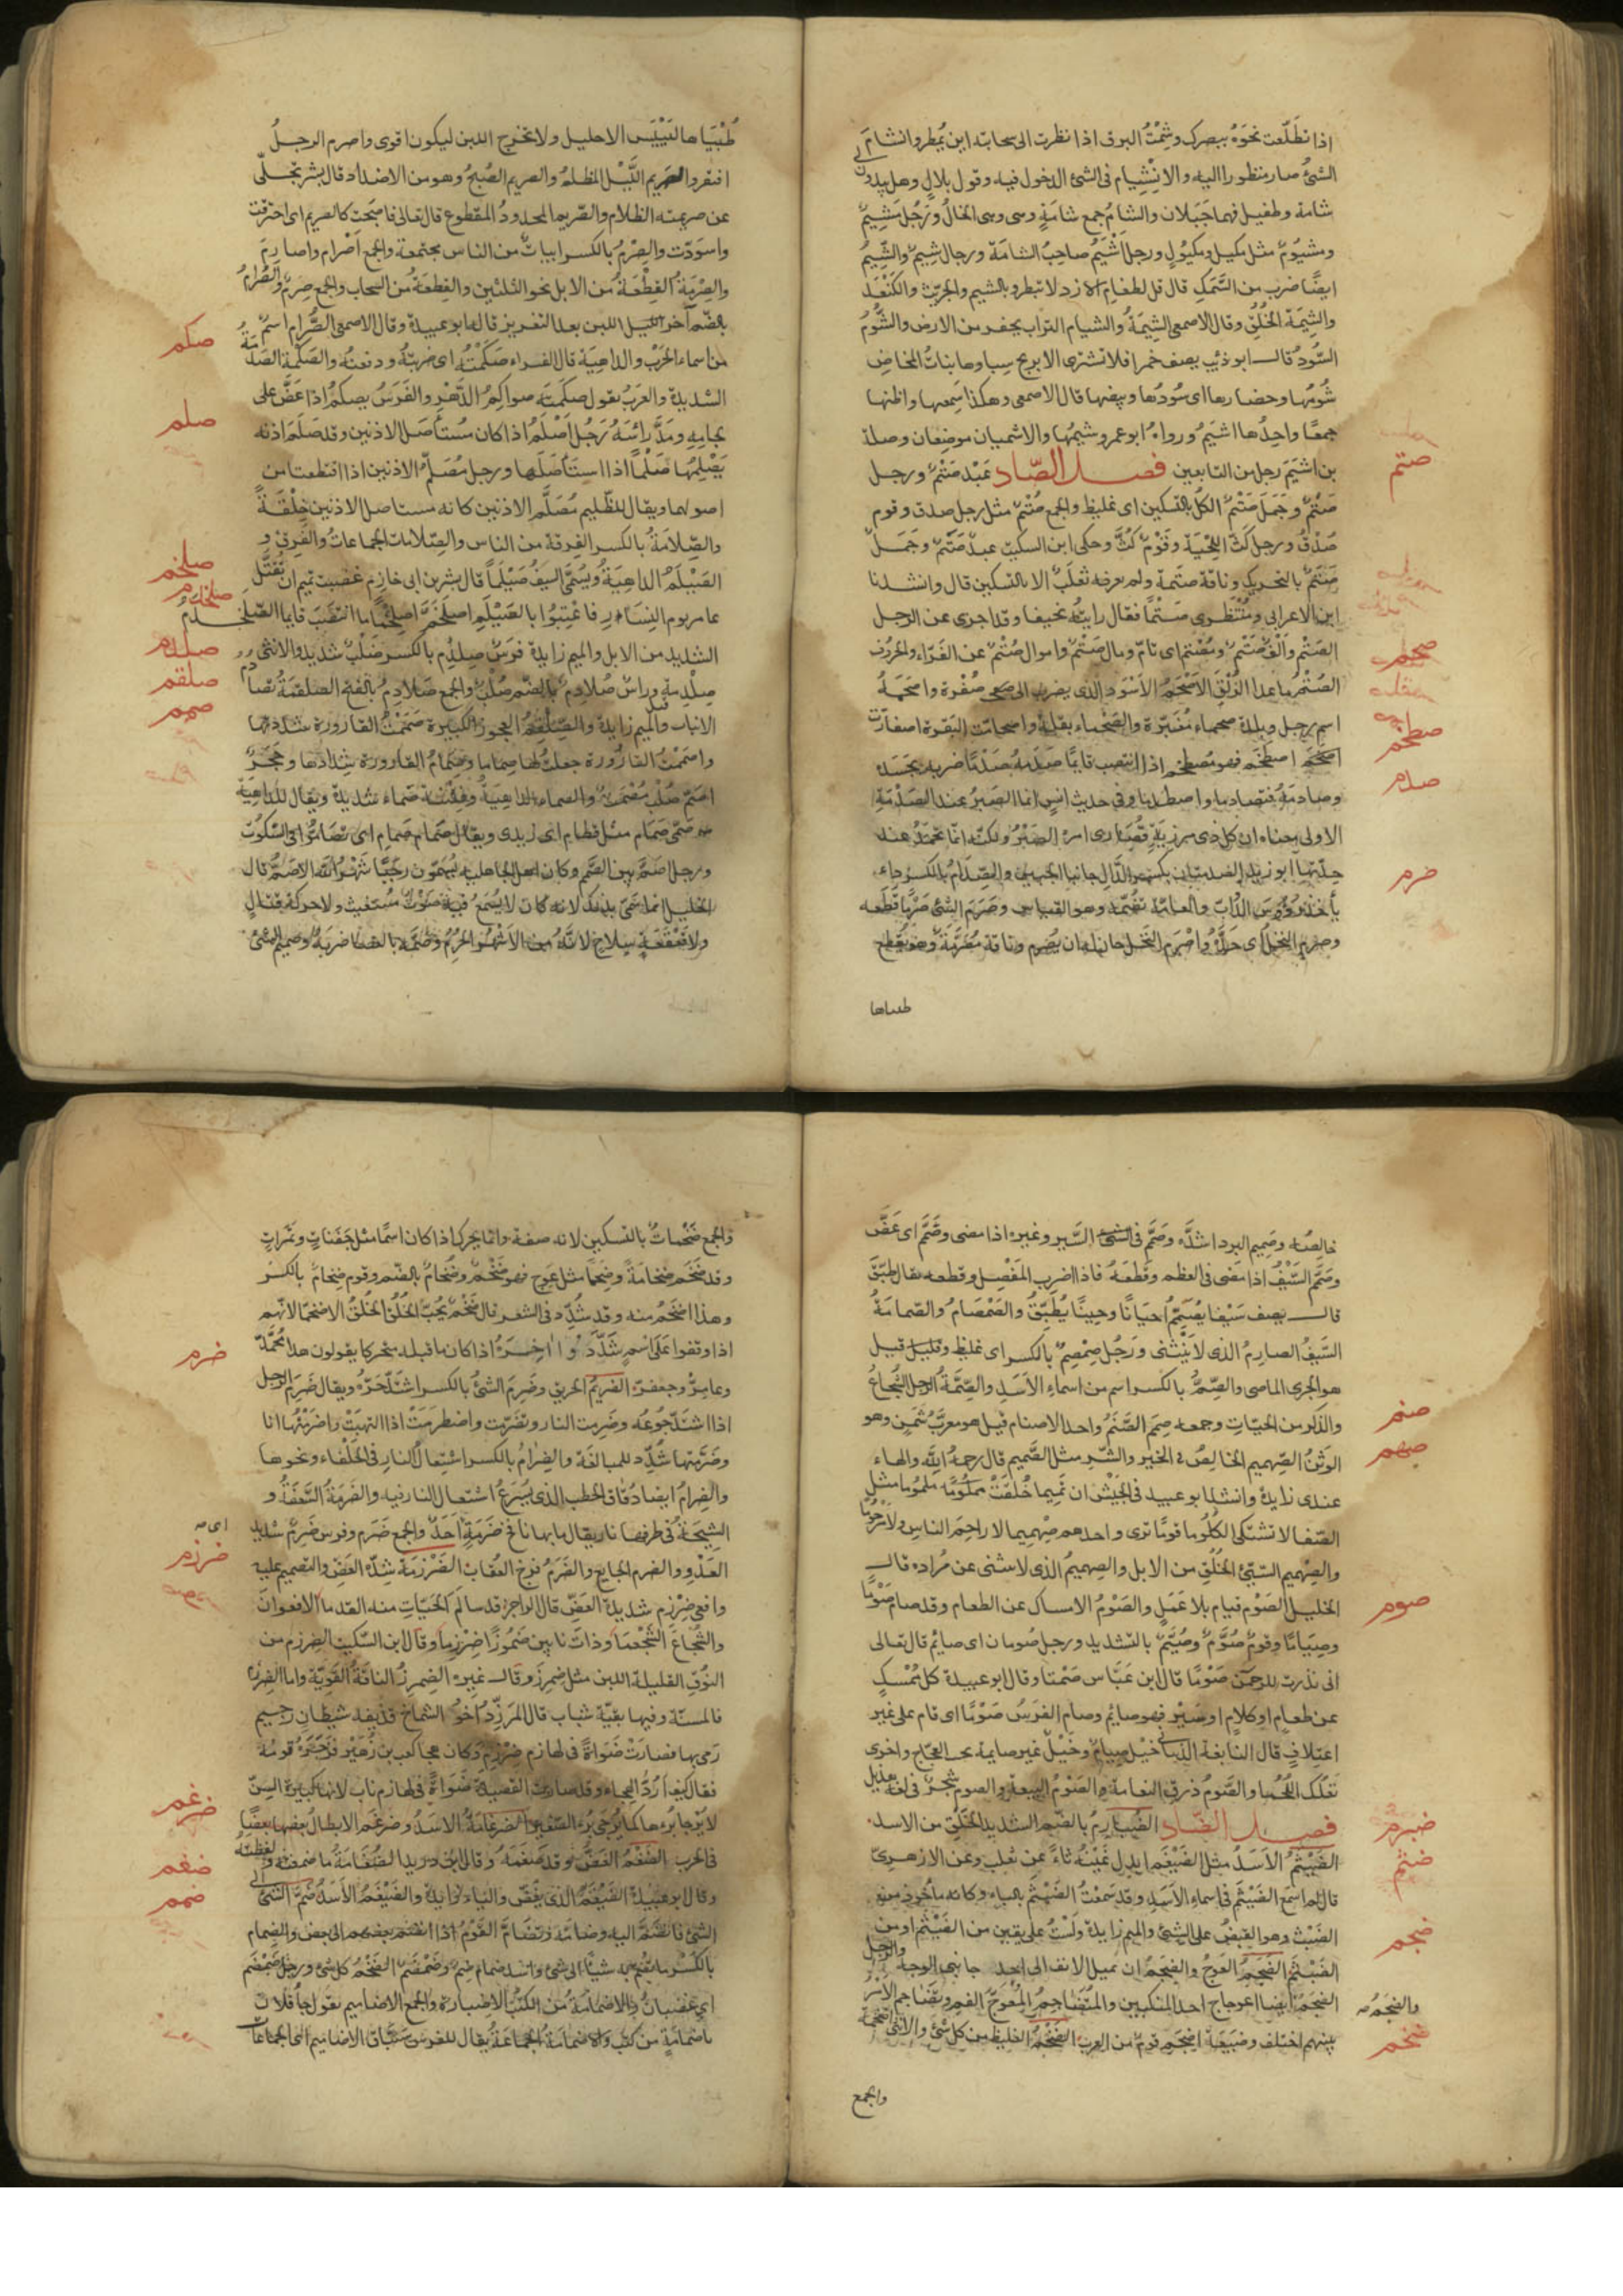 اذا تطلّعت نحوه ببصرك وشمت البرق اذا نظرت الى سحابته اين يمطر وانشام
الشئ صار منظورا اليه والانشيام فى الشئ الدخول فيه وقول بلال وهل يبدون لى
شامة وطفيل فهما جبلان والشام جمع شامة وهى الخال ورجل مشيم
ومشيوم مثل مكيل ومكيول ورجل اشيم صاحب الشامة ورجال شيم والشيم
ايضا ضرب من السمك قال قل لطغام الازد لا تبطروا بالشيم والجريث والكنعد
والشيمة الخلق وقال الاصمعى الشيمة والشيام التراب يحفر من الارض والشوم
السود قال ابو ذئيب يصف خمرا فلا تشترى الا بربح سباوها بنات المخاض
شومها وحضارها اى سودها وبيضها قال الاصمعى وهكذا سمعها واظنها
جمعا واحدها اشيم ورواه ابو عمرو شيمها والاشميان موضعان وصلة
بن اشيم رجل من التابعين فصل الصاد عبد صتم ورجل
صتم وجمل صتم الكل بالتسكين اى غليظ والجمع صتم مثل رجل صدق وقوم
صدق ورجل كث اللحية وقوم كث وحكى ابن السكيت عبد صتم وجمل
صتم بالتحريك وناقة صتمة ولم يعرفه ثعلب الا بالتسكين قال وانشدنا
ابن الاعرابى ومنتظرى صتما فقال رايته نحيفا وقد اجرى عن الرجل
الصتم والف صتم ومصتم اى تام ومال صتم واموال صتم عن الفراء والحروف
الصتم ما عدا الذلق الاصحم الاسود الذى يضرب الى صفرة واصحمة
اسم رجل وبلدة صحماء مغبرة والصحماء بقلة واصحامت البقرة اصفارت
اصطخم فهو مصطخم اذا انتصب قايما صدمه صدما ضربه بجسده
وصادمه فتصادما واصطدما وفى حديث انس انما الصبر عند الصدمة
الاولى معناه ان كل ذى مرزية قصاراه الصبر ولكنه انما يحمد عند
حدتها ابو زيد الصدمتان بكسر الدال جانبا الجبين والصدام بالكسر داء
يأخذ رؤس الدواب والعامة تضمه وهو القياس وصرم الشئ صرما قطعه
وصرم النخل اى جزه واصرم النخل حان له ان يصرم وناقة مصرمة وهو يقطع
طبياها
صتم
صحم
صطخم
صدم
صرم
طبياها لييبس الاحليل ولا يخرج اللبن ليكون اقوى واصرم الرجل
افتقر والصريم الليل المظلم والصريم الصبح وهو من الاضداد قال بشر تجلى
عن صريمته الظلام والصريم المجدود المقطوع قال تعالى فاصبحت كالصريم اى احترقت
واسودت والصرم بالكسر ابيات من الناس مجتمعة والجمع اصرام واصارم
والصرمة القطعة من الابل نحو الثلثين والقطعة من السحاب والجمع صرم والصرام
بالضم آخر اللبن بعد التغريز قاله ابو عبيدة وقال الاصمعى الصرام اسم
من اسماء الحرب والداهية قال الفراء صكمته اى ضربته ودفعته والصكمة الصدمة
الشديدة والعرب تقول صكمته صواكم الدهر والفرس يصكم اذا عض على
لجامه ومد رأسه رجل اصلم اذا كان مستأصل الاذنين وقد صلم اذنه
يصلمها صلما اذا استأصلها ورجل مصلم الاذنين اذا اقتطعتا من
اصولهما ويقال للظليم مصلم الاذنين كانه مستاصل الاذنين خلقة
والصلامة بالكسر الفرقة من الناس والصلامات الجماعات والفرق و
الصيلم الداهية ويسمى السيف صيلما قال بشر بن ابى خازم غضبت تميم ان تقتل
عامر يوم النسار فاعتبوا بالصيلم اصلخم اصلخماما انتصب قايما الصلخدم
الشديد من الابل والميم زايدة فرس صلدم بالكسر صلب شديد والانثى
صلدمة وراس صلادم بالضم صلب والجمع صلادم بالفتح الصلقمة تصادم
الانياب والميم زايدة والصلقم العجوز الكبيرة صممت القارورة شددتها
واصممت القارورة جعلت لها صماما وصمام القارورة شدادها وحجر
اصم صلب مصمت والصماء الداهية وفتنة صماء شديدة ويقال للداهية
صمى صمام مثل قطام اى زيدى ويقال صمام صمام اى تصاموا فى السكوت
ورجل اصم بين الصمم وكان اهل الجاهلية يسمون رجبا شهر الله الاصم قال
الخليل انما سمى بذلك لانه كان لا يسمع فيه صوت مستغيث ولا حركة قتال
ولا قعقعة سلاح لانه من الاشهر الحرم وصمه بالعصا ضربه وصميم الشئ
صكم
صلم
صلخم
صلخدم
صلدم
صلقم
صمم
خالصه وصميم البرد اشده وصمم فى الشئ السير وغيره اذا مضى وصمم اى عض
وصمم السيف اذا مضى فى العظم وقطعه فاذا اضرب المفصل وقطعه يقال طبق
قال يصف سيفا يصمم احيانا وحينا يطبق والصمصام والصمصامة
السيف الصارم الذى لا ينثنى ورجل صمصم بالكسر اى غليظ وقليل قيل
هو الجرى الماضى والصمة بالكسر اسم من اسماء الاسد والصمة الرجل الشجاع
والذكر من الحيات وجمعه صمم الصنم واحد الاصنام قيل هو معرب شمن وهو
الوثن الصهميم الخالص فى الخير والشر مثل الصميم قال رحمه الله والهاء
عندى زايدة وانشد ابو عبيد فى الجيش ان تميما خلقت ملموما مثل
الصفا لا تشتكى الكلوما قوما ترى واحدهم صهميما لا راحم الناس ولا مرحوما
والصهميم السيئ الخلق من الابل والصهميم الذى لا ينثنى عن مراده قال
الخليل الصوم قيام بلا عمل والصوم الامساك عن الطعام وقد صام صوما
وصياما وقوم صوم وصيم بالتشديد ورجل صومان اى صائم قال تعالى
انى نذرت للرحمن صوما قال ابن عباس صمتا وقال ابو عبيدة كل ممسك
عن طعام او كلام او سير فهو صايم وصام الفرس صوما اى قام على غير
اعتلاف قال النابغة الذبيانى خيل صيام وخيل غير صايمة تحت العجاج واخرى
تعلك اللجما والصوم ذرق النعامة والصوم البيعة والصوم شجر فى لغة هذيل
فصل الضاد الضبارم بالضم الشديد الخلق من الاسد
الضيثم الاسد مثل الضيغم ابدل غينه ثاء عن ثعلب وعن الازهرى
قال لم اسمع الضيثم فى اسماء الاسد وقد سمعت الضبثم بالباء وكانه مأخوذ من
الضبث وهو القبض على الشئ والميم زايدة ولست على يقين من الضيثم او من
الضبثم الضجم العوج والضجم ان يميل الانف الى احد جانبى الوجه والرجل
الضجم ايضا اعوجاج احد المنكبين والمتضاجم المعوج الفم وتضاجم الامر
بينهم اختلف وضبيعة اضجم قوم من العرب الضخم الغليظ من كل شئ والانثى ضخمة
والجمع
صنم
صهم
صوم
ضبرم
ضثم
ضجم
والضجم
ضخم
والجمع ضخمات بالتسكين لانه صفة وانما يحرك اذا كان اسما مثل جفنات وتمرات
وقد ضخم ضخامة وضخما مثل عوج فهو ضخم وضخام بالضم وقوم ضخام بالكسر
وهذا اضخم منه وقد شدد فى الشعر قال ضخم يحب الخلق الاضخما لانهم
اذا وقفوا على اسم شددوا اخره اذا كان ما قبله متحركا يقولون هذا محمد
وعامر وجعفر الضرم الحريق وضرم الشئ بالكسر اشتد حره ويقال ضرم الرجل
اذا اشتد جوعه وضرمت النار وتضرمت واضطرمت اذا التهبت واضرمتها انا
وضرمتها شدد للمبالغة والضرام بالكسر اشتعال النار فى الحلفاء ونحوها
والضرام ايضا دقاق الحطب الذى يسرع اشتعال النار فيه والضرمة السعفة و
الشيحة فى طرفها نار يقال ما بها نافخ ضرمة احد والجمع ضرم وفرس ضرم شديد
العدو والضرم الجايع والضرم فرخ العقاب الضرزمة شدة العض والتصميم عليه
وافعى ضرزم شديدة العض قال الراجز قد سالم الحيات منه القدما الافعوان
والشجاع الشجعما وذات نابين ضموزا ضرزما وقال ابن السكيت الضرزم من
النوق القليلة اللبن مثل ضمرز وقال غيره الضمرز الناقة القوية واما الضرزم
فالمسنة وفيها بقية شباب قال المزرد اخو الشماخ قذيفة شيطان رجيم
رمى بها فصارت ضواة فى لهازم ضرزم وكان هجا كعب بن زهير فزجره قومه
فقال كيف ارد الهجاء وقد صارت القصيدة ضواة فى لهازم ناب لانها كبيرة السن
لا يرجا برءها كما يرجى برء الصغير الضرغامة الاسد وضرغم الابطال بعضها بعضا
فى الحرب الضغم العض وقد ضغمه وقال ابن دريد الضغامة ما ضغمته ولفظته
وقال ابو عبيدة الضيغم الذى يعض والياء زايدة والضيغم الاسد ضم الشئ الى
الشئ فانضم اليه وضامه وتضام القوم اذا انضم بعضهم الى بعض والضمام
بالكسر ما تضم به شيئا الى شئ واسد ضماضم وضمضم الضخم كل شئ ورجل ضمضم
اى غضبان والاضمامة من الكتب الاضبارة والجمع الاضاميم يقول جا فلان
باضمامة من كتب والاضمامة الجماعة يقال للفرس سباق الاضاميم اى الجماعات
ضرم
ضرزم
ضرغم
ضغم
ضمم